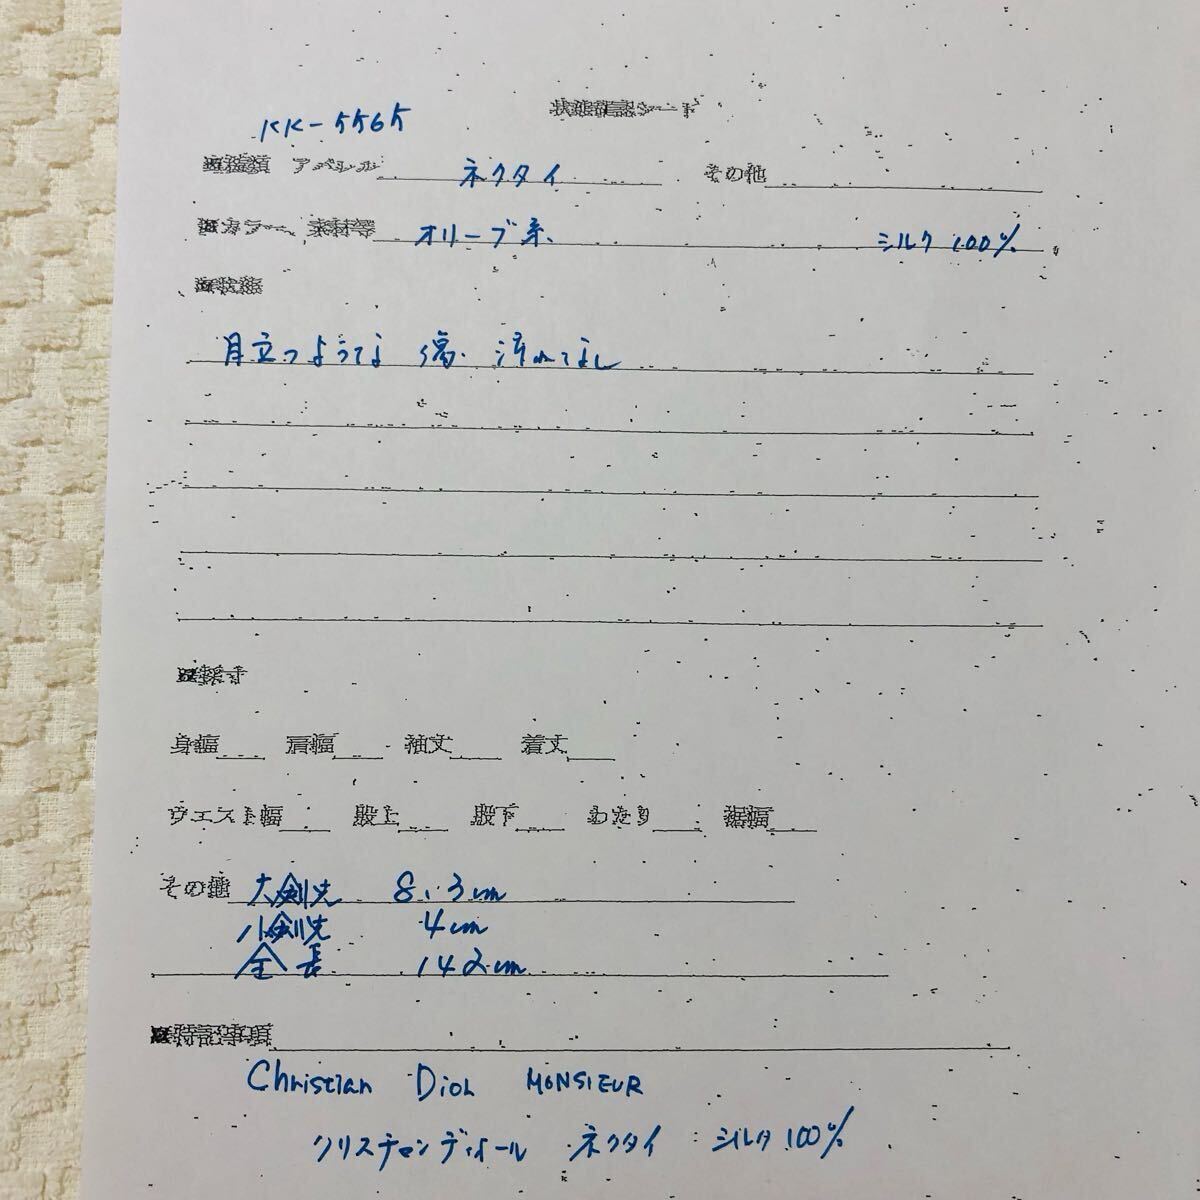 状態確認シート
KK-5565
※種類 アパレル ネクタイ その他
※カラー、素材等 オリーブ系 シルク 100%
※状態
目立つような 傷・汚れなし
※採寸
身幅 肩幅 袖丈 着丈
ウエスト幅 股上 股下 わたり 裾幅
その他 大剣先 8.3cm
小剣先 4cm
全長 142cm
※特記事項
Christian Dior MONSIEUR
クリスチャンディオール ネクタイ シルク 100%